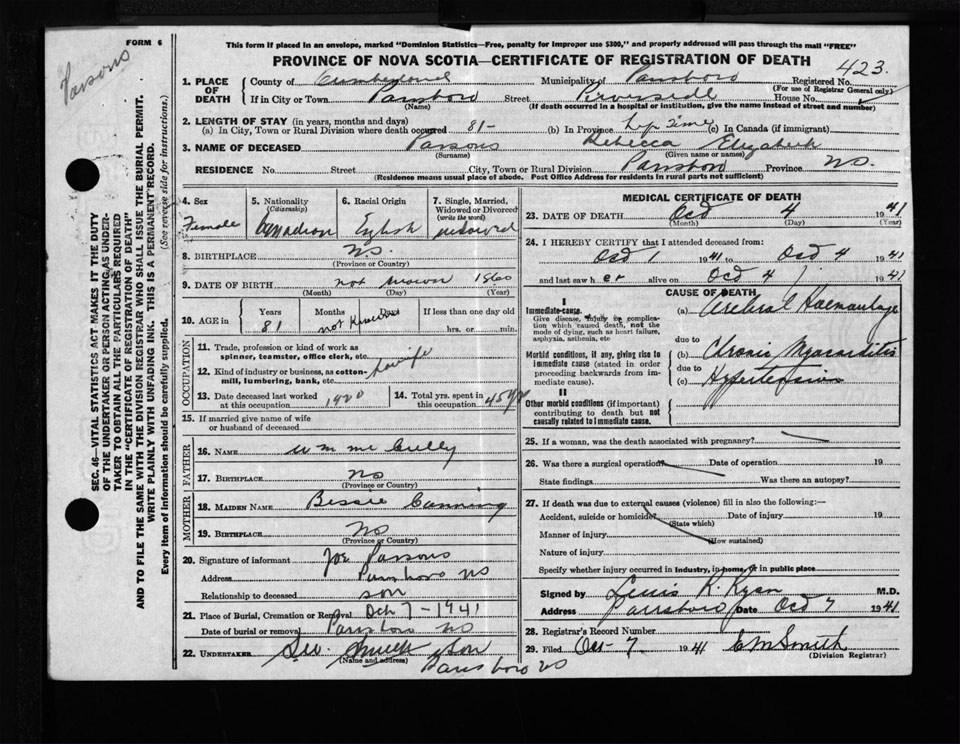 Parsons
FORM 6
This form if placed in an envelope, marked "Dominion Statistics—Free, penalty for improper use $300," and properly addressed will pass through the mail "FREE"
PROVINCE OF NOVA SCOTIA—CERTIFICATE OF REGISTRATION OF DEATH
423.
1. PLACE OF DEATH
County of Cumberland Municipality of Parrsboro Registered No.
(For use of Registrar General only)
If in City or Town Parrsboro Street Riverside House No.
(Name) (If death occurred in a hospital or institution, give the name instead of street and number)
2. LENGTH OF STAY (in years, months and days)
(a) In City, Town or Rural Division where death occurred 81- (b) In Province Life Time (c) In Canada (if immigrant)
3. NAME OF DECEASED Parsons Rebecca Elizabeth
(Surname) (Given name or names)
RESIDENCE No. Street City, Town or Rural Division Parrsboro Province N.S.
(Residence means usual place of abode. Post Office Address for residents in rural parts not sufficient)
4. Sex
Female
5. Nationality
(Citizenship)
Canadian
6. Racial Origin
English
7. Single, Married, Widowed or Divorced
(write the word)
widowed
8. BIRTHPLACE N.S.
(Province or Country)
9. DATE OF BIRTH not known 1860
(Month) (Day) (Year)
10. AGE in
Years Months Days If less than one day old
81 not known hrs. or min.
OCCUPATION
11. Trade, profession or kind of work as spinner, teamster, office clerk, etc.
12. Kind of industry or business, as cotton-mill, lumbering, bank, etc.
13. Date deceased last worked at this occupation 1920
14. Total yrs. spent in this occupation 45 yrs
15. If married give name of wife or husband of deceased
FATHER
16. NAME Wm Mc Cully
17. BIRTHPLACE NS
(Province or Country)
MOTHER
18. MAIDEN NAME Bessie Canning
19. BIRTHPLACE NS
(Province or Country)
20. Signature of informant Joe Parsons
Address Parrsboro NS
Relationship to deceased son
21. Place of Burial, Cremation or Removal Oct 7-1941
Date of burial or removal Parrsboro NS
22. UNDERTAKER Son
(Name and address)
Parrsboro NS
MEDICAL CERTIFICATE OF DEATH
23. DATE OF DEATH Oct 4 1941
(Month) (Day) (Year)
24. I HEREBY CERTIFY that I attended deceased from:
Oct 1 1941 to Oct 4 1941
and last saw her alive on Oct 4 1941
CAUSE OF DEATH
I
Immediate cause.
Give disease, injury or complication which caused death, not the mode of dying, such as heart failure, asphyxia, asthenia, etc
(a) Cerebral Haemorrhage
due to
Morbid conditions, if any, giving rise to immediate cause (stated in order proceeding backwards from immediate cause).
(b) Chronic Myocarditis
due to
(c) Hypertension
II
Other morbid conditions (if important) contributing to death but not causally related to immediate cause.
25. If a woman, was the death associated with pregnancy?
26. Was there a surgical operation? Date of operation 19
State findings Was there an autopsy?
27. If death was due to external causes (violence) fill in also the following:—
Accident, suicide or homicide? Date of injury 19
(State which)
Manner of injury
(How sustained)
Nature of injury
Specify whether injury occurred in industry, in home, or in public place
Signed by R. M.D.
Address Parrsboro Date Oct 7 1941
28. Registrar's Record Number
29. Filed Oct 7 1941 E M Smith
(Division Registrar)
SEC. 46—VITAL STATISTICS ACT MAKES IT THE DUTY
OF THE UNDERTAKER OR PERSON ACTING AS UNDER-
TAKER TO OBTAIN ALL THE PARTICULARS REQUIRED
IN THE "CERTIFICATE OF REGISTRATION OF DEATH"
AND TO FILE THE SAME WITH THE DIVISION REGISTRAR WHO SHALL ISSUE THE BURIAL PERMIT.
WRITE PLAINLY WITH UNFADING INK. THIS IS A PERMANENT RECORD.
Every item of information should be carefully supplied. (See reverse side for instructions.)